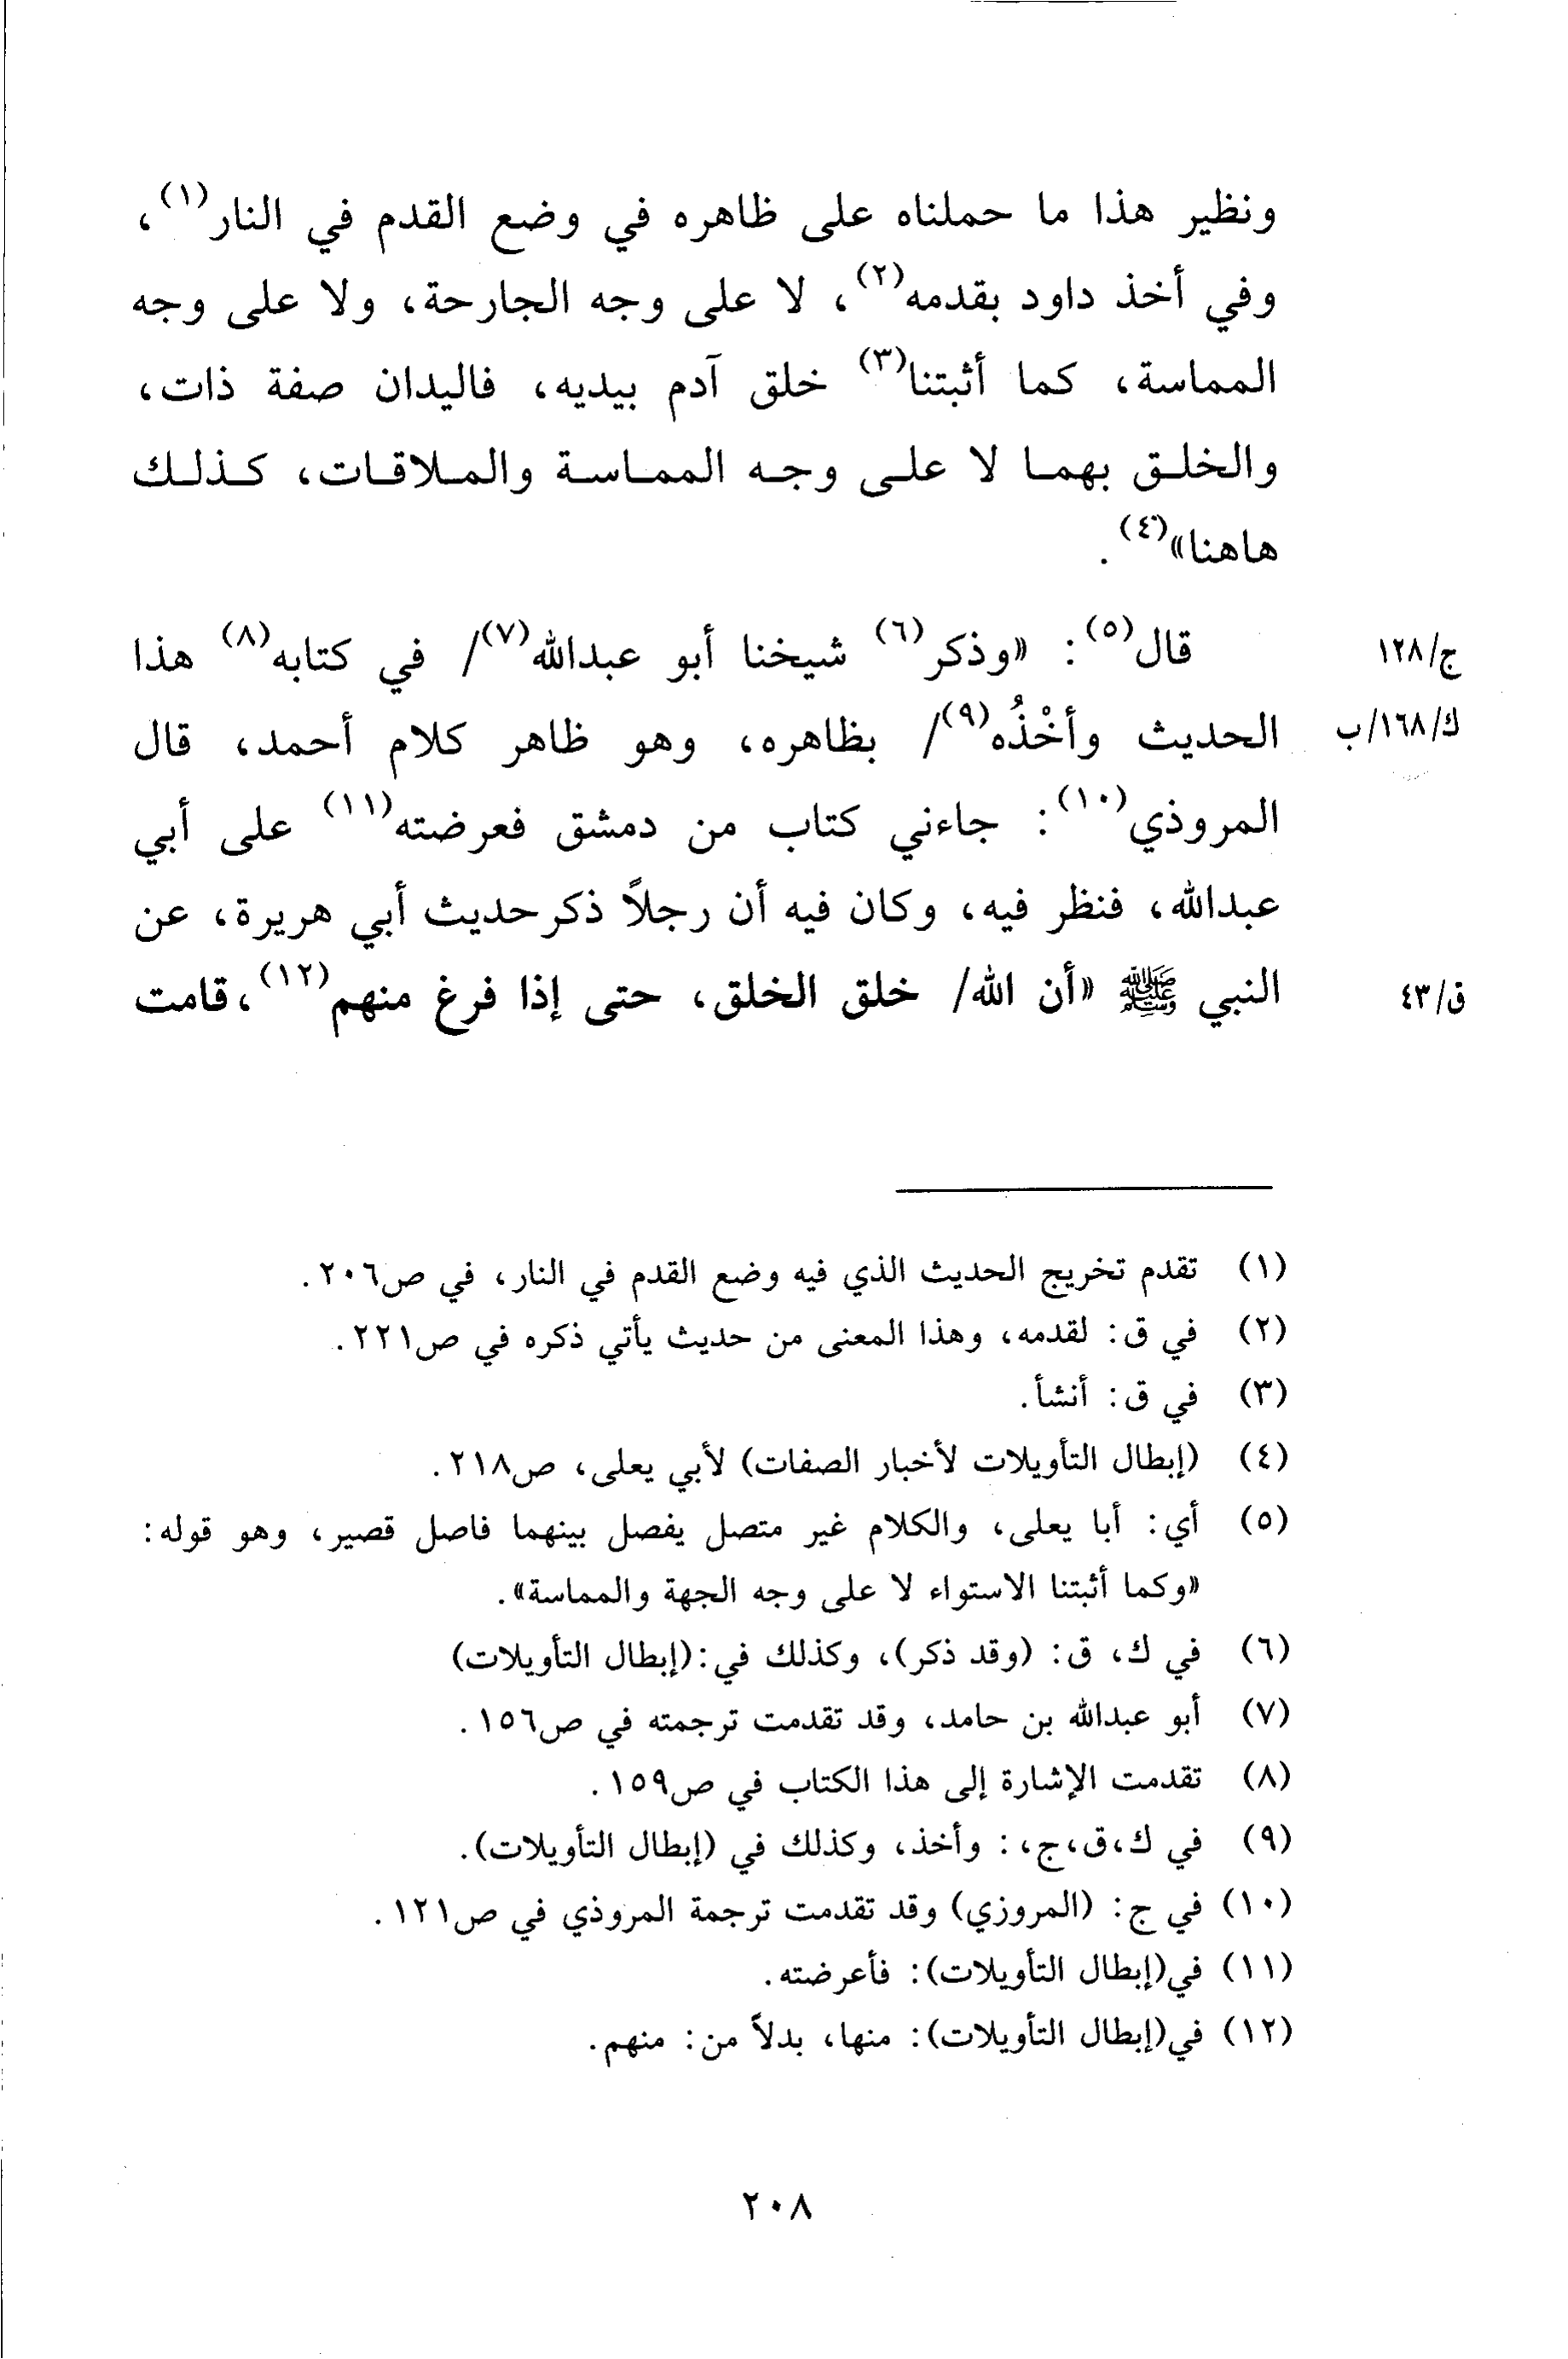 ونظير هذا ما حملناه على ظاهره في وضع القدم في النار(١)،
وفي أخذ داود بقدمه(٢)، لا على وجه الجارحة، ولا على وجه
المماسة، كما أثبتنا(٣) خلق آدم بيديه، فاليدان صفة ذات،
والخلق بهما لا على وجه المماسة والملاقات، كذلك
هاهنا»(٤).
قال(٥): «وذكر(٦) شيخنا أبو عبدالله(٧)/ في كتابه(٨) هذا
ج/١٢٨
الحديث وأخْذُه(٩)/ بظاهره، وهو ظاهر كلام أحمد، قال
ك/١٦٨/ب
المروذي(١٠): جاءني كتاب من دمشق فعرضته(١١) على أبي
عبدالله، فنظر فيه، وكان فيه أن رجلاً ذكر حديث أبي هريرة، عن
النبي ﷺ «أن الله/ خلق الخلق، حتى إذا فرغ منهم(١٢)، قامت
ق/٤٣
(١) تقدم تخريج الحديث الذي فيه وضع القدم في النار، في ص٢٠٦.
(٢) في ق: لقدمه، وهذا المعنى من حديث يأتي ذكره في ص٢٢١.
(٣) في ق: أنشأ.
(٤) (إبطال التأويلات لأخبار الصفات) لأبي يعلى، ص٢١٨.
(٥) أي: أبا يعلى، والكلام غير متصل يفصل بينهما فاصل قصير، وهو قوله:
«وكما أثبتنا الاستواء لا على وجه الجهة والمماسة».
(٦) في ك، ق: (وقد ذكر)، وكذلك في:(إبطال التأويلات)
(٧) أبو عبدالله بن حامد، وقد تقدمت ترجمته في ص١٥٦.
(٨) تقدمت الإشارة إلى هذا الكتاب في ص١٥٩.
(٩) في ك،ق،ج،: وأخذ، وكذلك في (إبطال التأويلات).
(١٠) في ج: (المروزي) وقد تقدمت ترجمة المروذي في ص١٢١.
(١١) في(إبطال التأويلات): فأعرضته.
(١٢) في(إبطال التأويلات): منها، بدلاً من: منهم.
٢٠٨